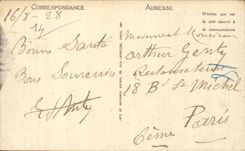 CORRESPONDANCE
ADRESSE
16/8-28
14
Bonne Santé
Bons Souvenirs
Monsieur
Arthur Genty
Restaurateur
18 Bd St Michel
Paris
6ème
N'écrire que sur
le côté réservé à
la correspondance